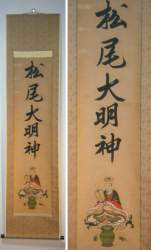 松尾大明神
松尾大明神